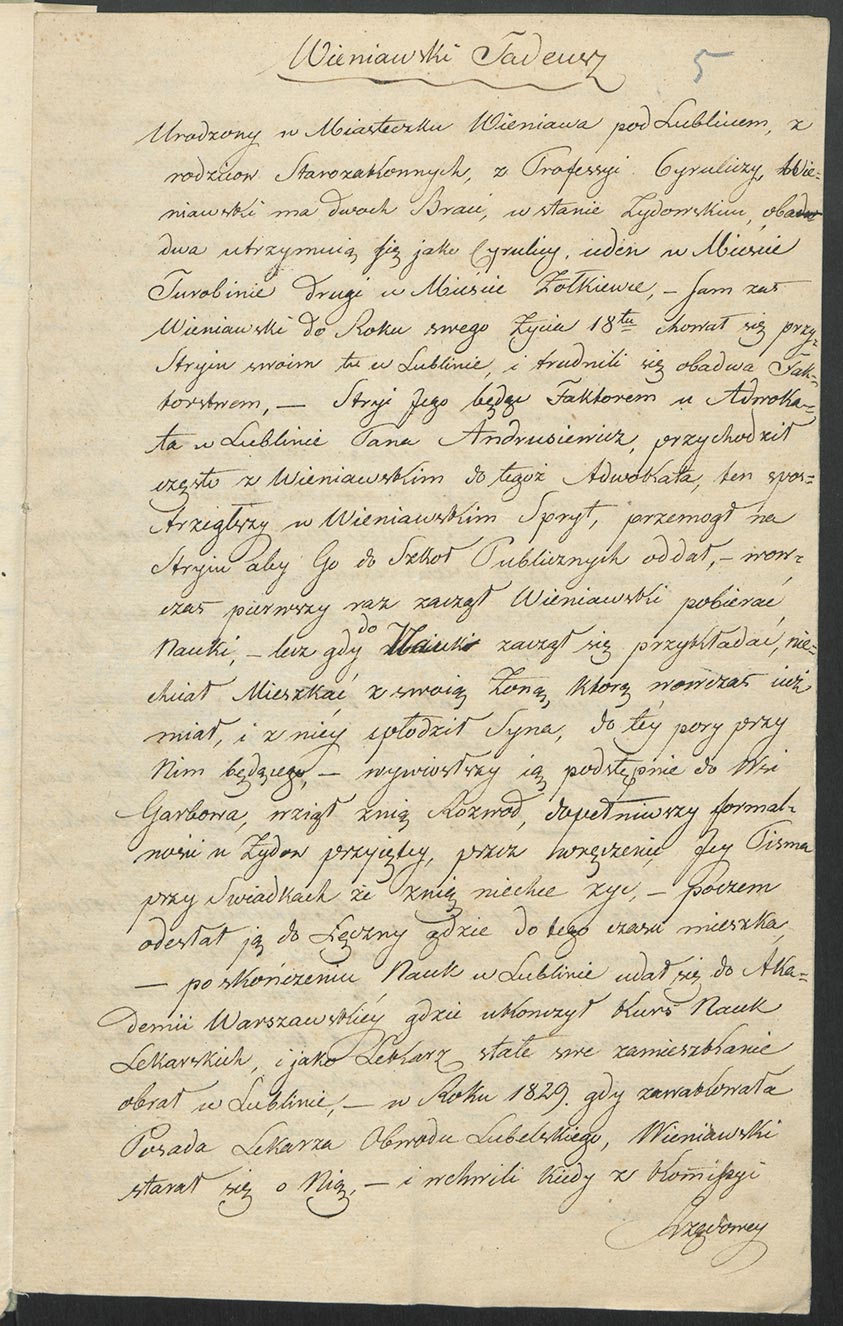 Wieniawski Tadeusz
5
Urodzony w Miasteczku Wieniawa pod Lublinem, z
rodzicow Starozakonnych, z Professyi Cyruliczy, Wie-
niawski ma dwoch Braci, w stanie Żydowskim,
dwa utrzymuią się jako Cyrulicy, ieden w Miescie
Turobinie drugi w Miescie Żołkiewce, – sam zaś
Wieniawski do Roku swego Życia 18tu chował się przy
Stryiu swoim tu w Lublinie, i trudnili się obadwa Fak-
torstwem, – Stryi Jego będąc Faktorem u Adwoka-
ta w Lublinie Pana Andrusiewicz, przychodził
często z Wieniawskim do tegoż Adwokata, ten spos-
trzegłszy w Wieniawskim Spryt, przemogł na
Stryiu aby Go do Szkoł Publicznych oddał, – wow-
czas pierwszy raz zaczął Wieniawski pobierać
Nauki, – lecz gdy do Nauk zaczął się przykładać, nie-
chciał Mieszkać z swoią Żoną, którą wowczas iuż
miał, i z niey spłodził Syna, do tey pory przy
Nim będącego, – wywiosłszy ią podstępnie do Wsi
Garbowa, wziął z nią Rozwod, dopełniwszy formal-
ności u Żydow przyiętey, przez wręczenie Jey Pisma
przy Swiadkach że z nią niechce żyć, – poczem
odesłał ją do Łęczny gdzie do tego czasu mieszka
– po skończeniu Nauk w Lublinie udał się do Aka-
demii Warszawskiey gdzie ukonczył Kurs Nauk
Lekarskich, i jako Lekarz stałe swe zamieszkanie
obrał w Lublinie, – w Roku 1829. gdy zawakowała
Posada Lekarza Obwodu Lubelskiego, Wieniawski
starał się o Nią, – i w chwili kiedy z Kommissyi
Rządowey